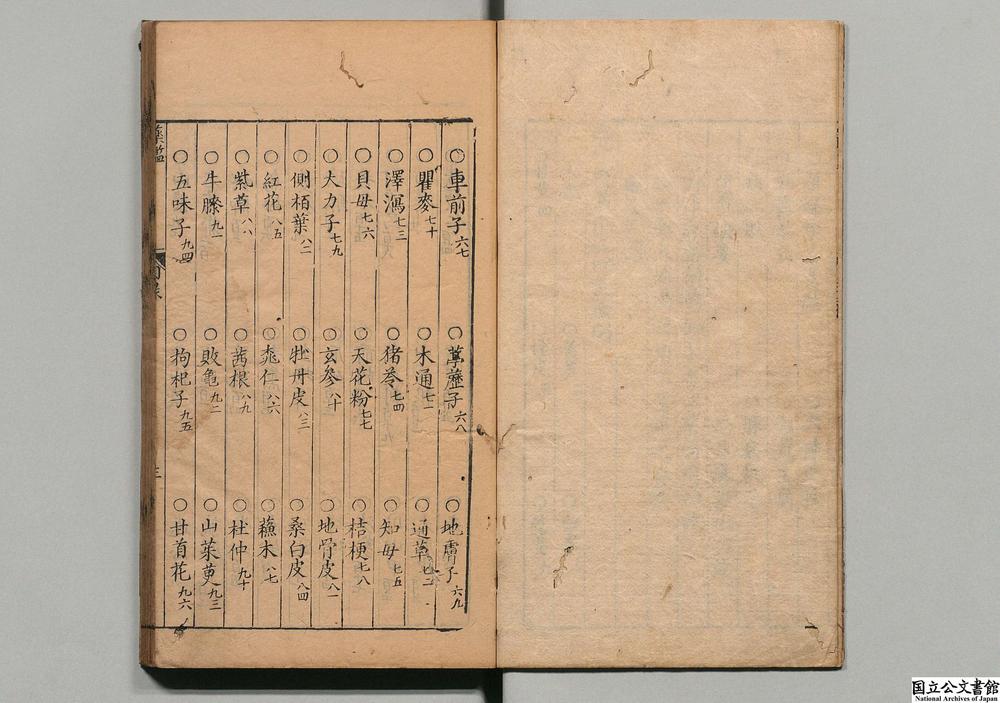 ○車前子六七 ○葶藶子六八 ○地膚子六九
○瞿麥七十 ○木通七一 ○通草七二
○澤瀉七三 ○猪苓七四 ○知母七五
○貝母七六 ○天花粉七七 ○桔梗七八
○大力子七九 ○玄參八十 ○地骨皮八一
○側栢葉八二 ○牡丹皮八三 ○桑白皮八四
○紅花八五 ○桃仁八六 ○蘓木八七
○紫草八八 ○茜根八九 ○杜仲九十
○牛膝九一 ○敗龜九二 ○山茱萸九三
○五味子九四 ○拘杞子九五 ○甘首花九六
目錄
三
国立公文書館
National Archives of Japan